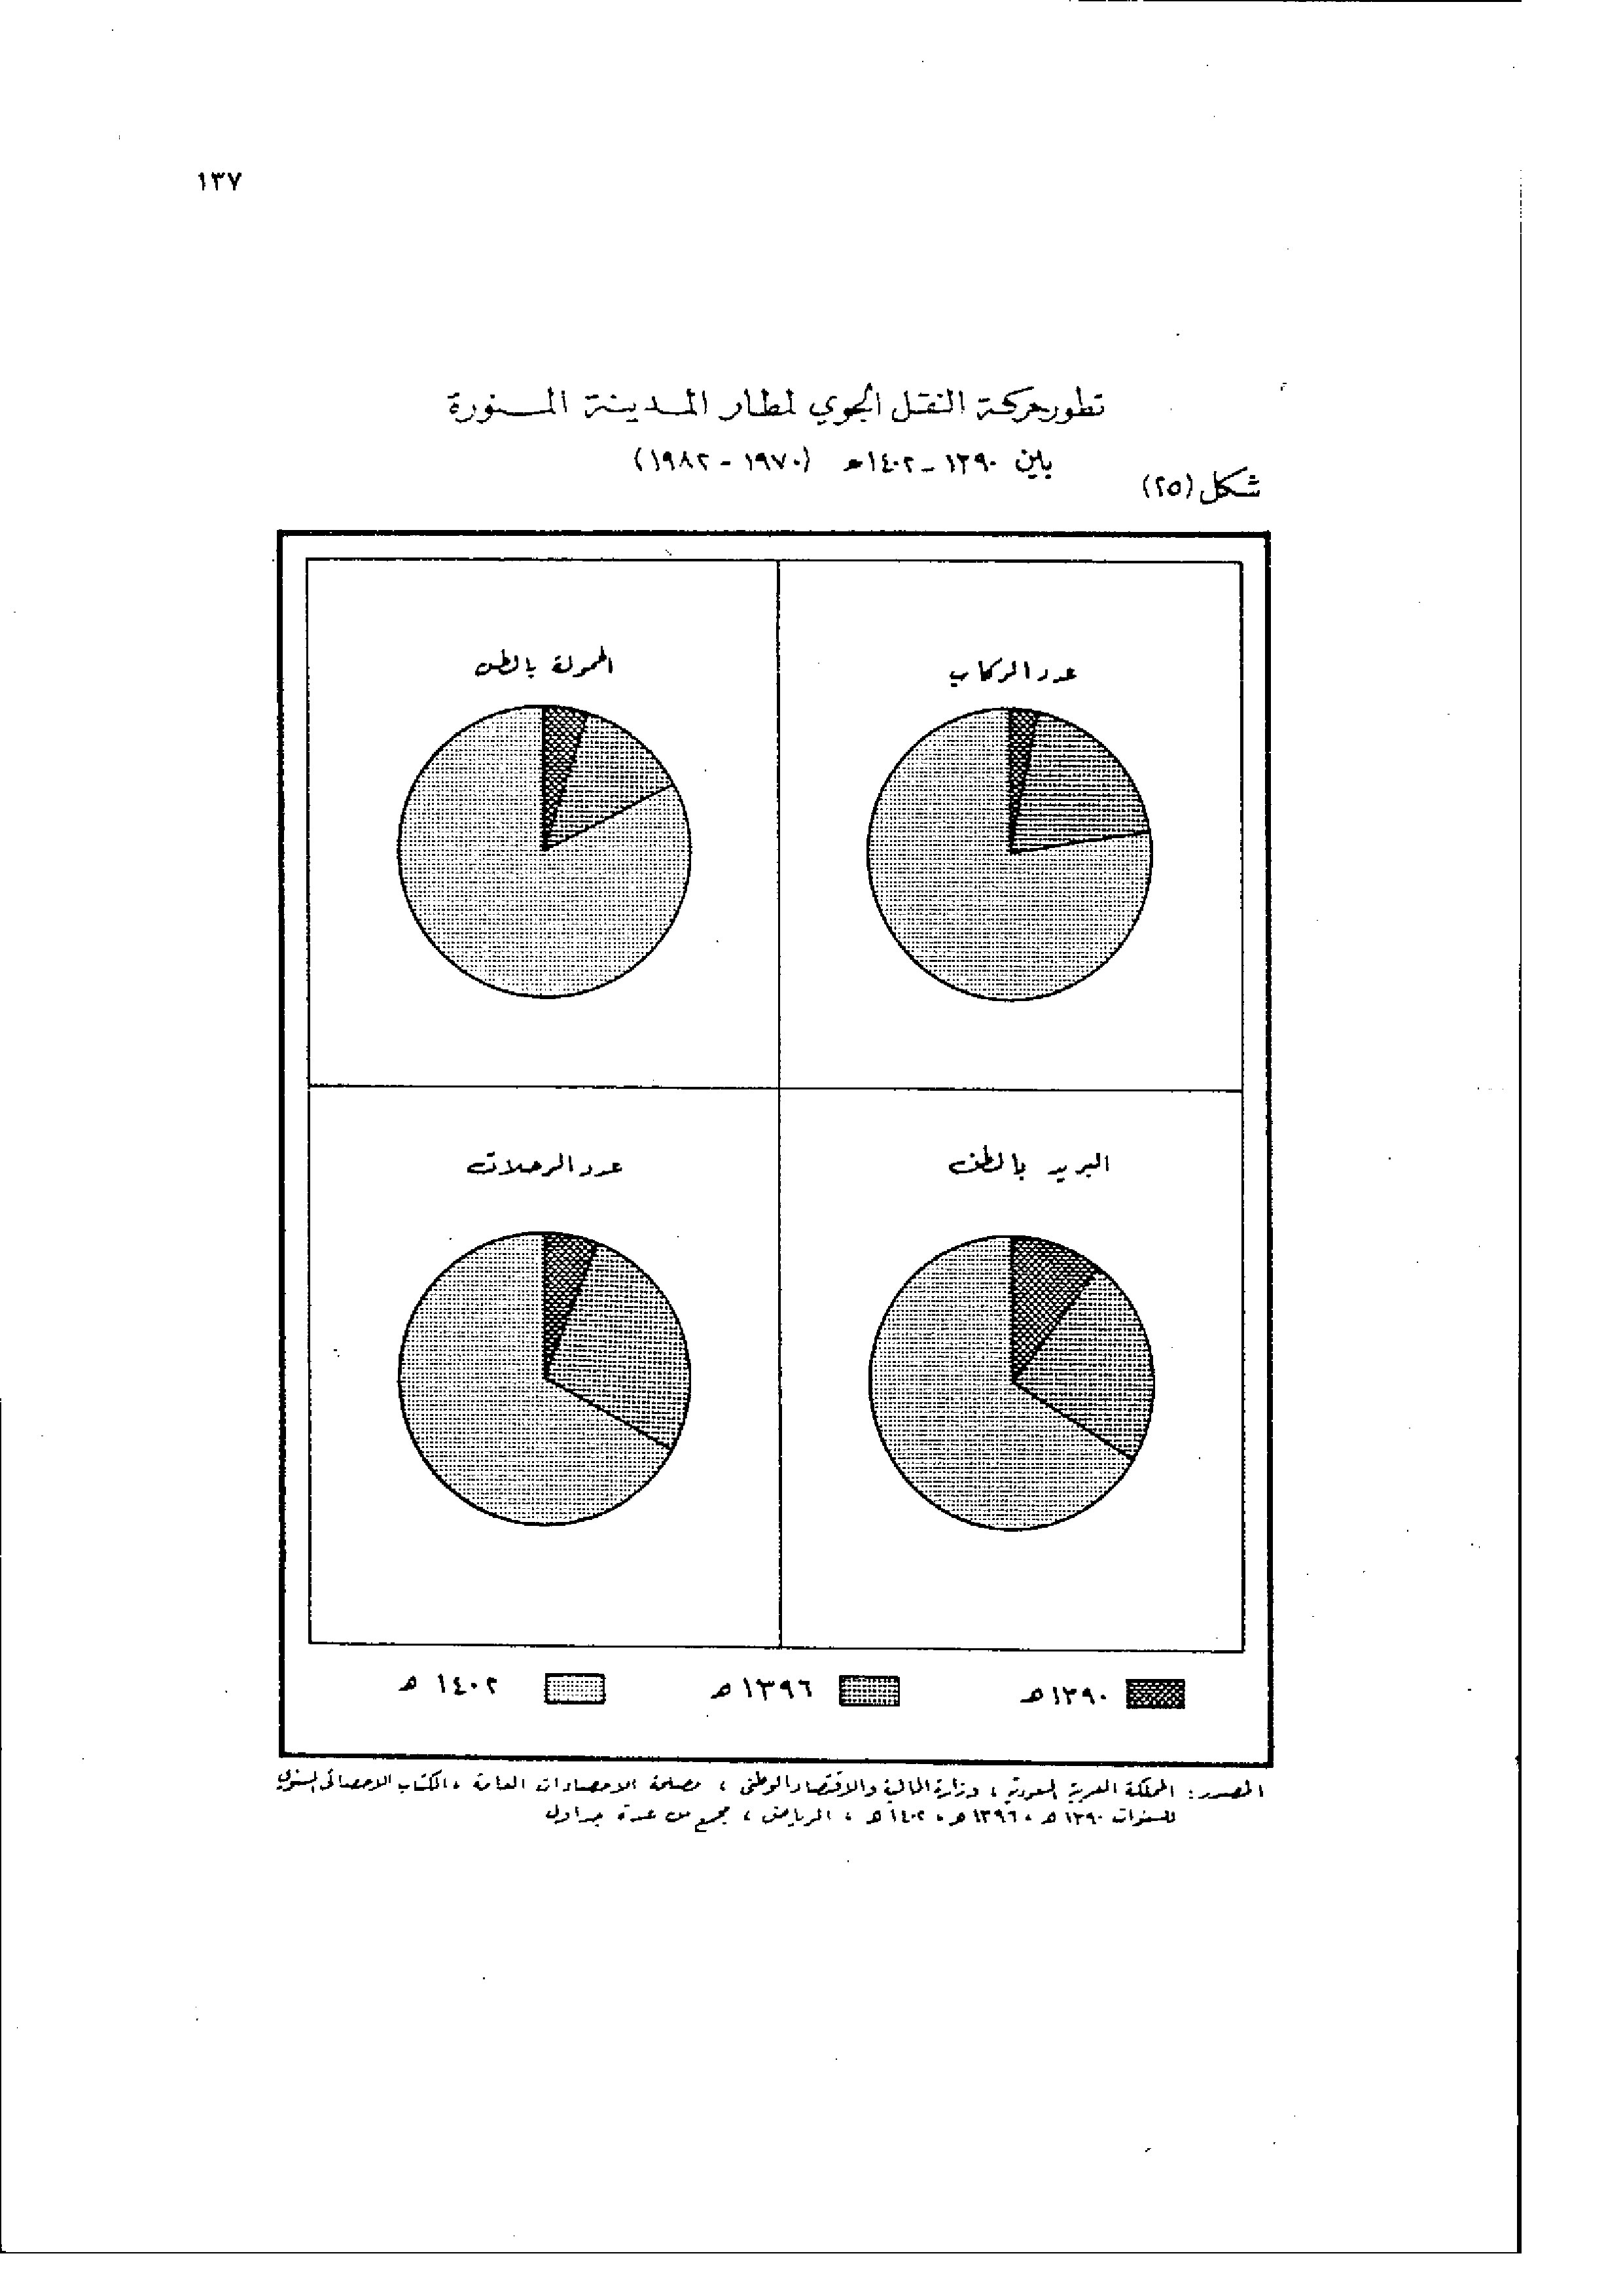 ١٣٧
تطور حركة النقل الجوي لمطار المدينة المنورة
بين ١٣٩٠ - ١٤٠٢هـ (١٩٧٠ - ١٩٨٢)
شكل (٢٥)
عدد الركاب
الحمولة بالطن
البريد بالطن
عدد الرحلات
١٣٩٠هـ
١٣٩٦هـ
١٤٠٢ هـ
المصدر: المملكة العربية السعودية ، وزارة المالية والاقتصاد الوطني ، مصلحة الاحصاءات العامة ، الكتاب الاحصائي السنوي
للسنوات ١٣٩٠ هـ ، ١٣٩٦ هـ ، ١٤٠٢ هـ ، الرياض ، مجمع من عدة جداول